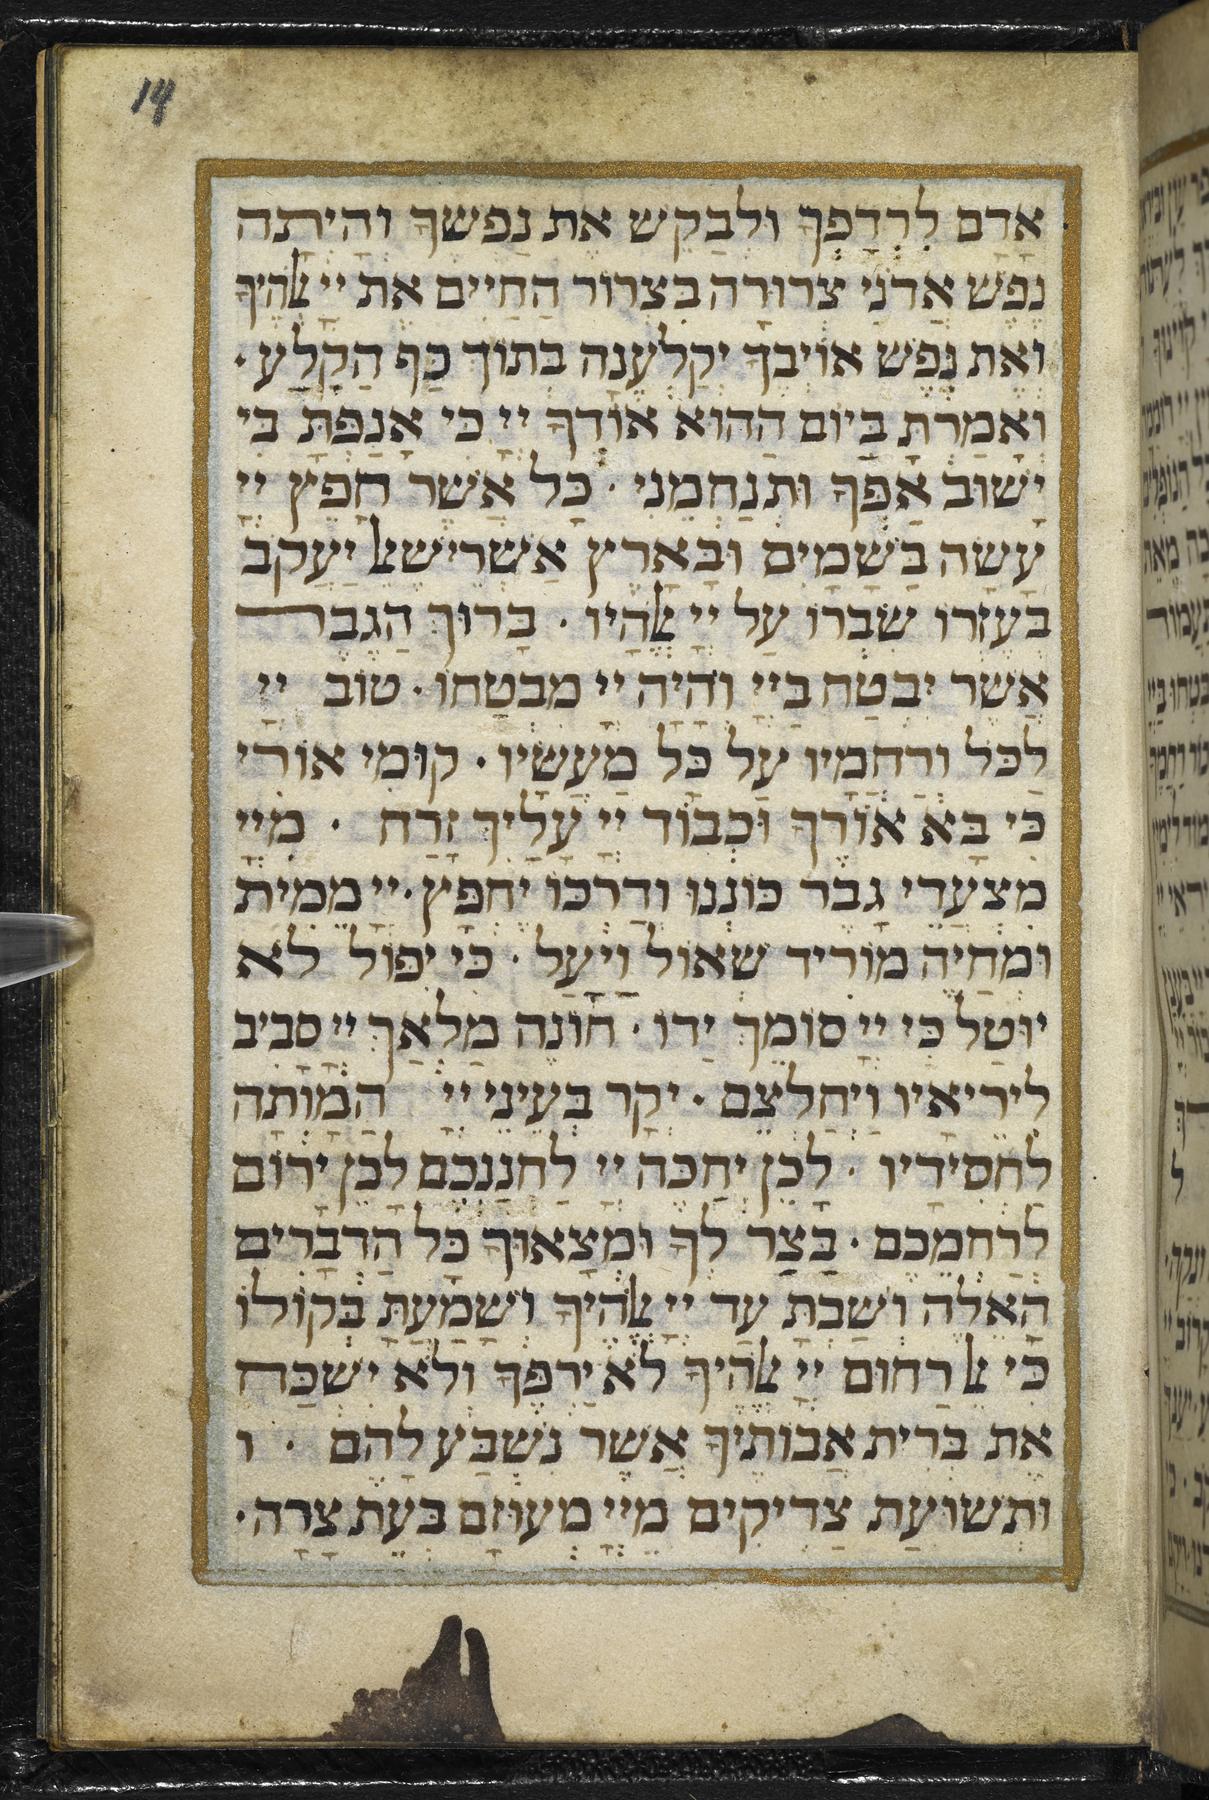 14
אדם לרדפך ולבקש את נפשך והיתה
נפש אדני צרורה בצרור החיים את יי אלהיך
ואת נפש אויביך יקלענה בתוך כף הקלע ·
ואמרת ביום ההוא אודך יי כי אנפת בי
ישוב אפך ותנחמני · כל אשר חפץ יי
עשה בשמים ובארץ אשרי שאל יעקב
בעזרו שברו על יי אלהיו · ברוך הגבר
אשר יבטח ביי והיה יי מבטחו · טוב יי
לכל ורחמיו על כל מעשיו · קומי אורי
כי בא אורך וכבוד יי עליך זרח · מיי
מצעדי גבר כוננו ודרכו יחפץ · יי ממית
ומחיה מוריד שאול ויעל · כי יפול לא
יוטל כי יי סומך ידו · חונה מלאך יי סביב
ליריאיו ויחלצם · יקר בעיני יי המותה
לחסידיו · לכן יחכה יי לחננכם לכן ירום
לרחמכם · בצר לך ומצאוך כל הדברים
האלה ושבת עד יי אלהיך ושמעת בקולו
כי אל רחום יי אלהיך לא ירפך ולא ישכח
את ברית אבותיך אשר נשבע להם · ו
ותשועת צדיקים מיי מעוזם בעת צרה ·